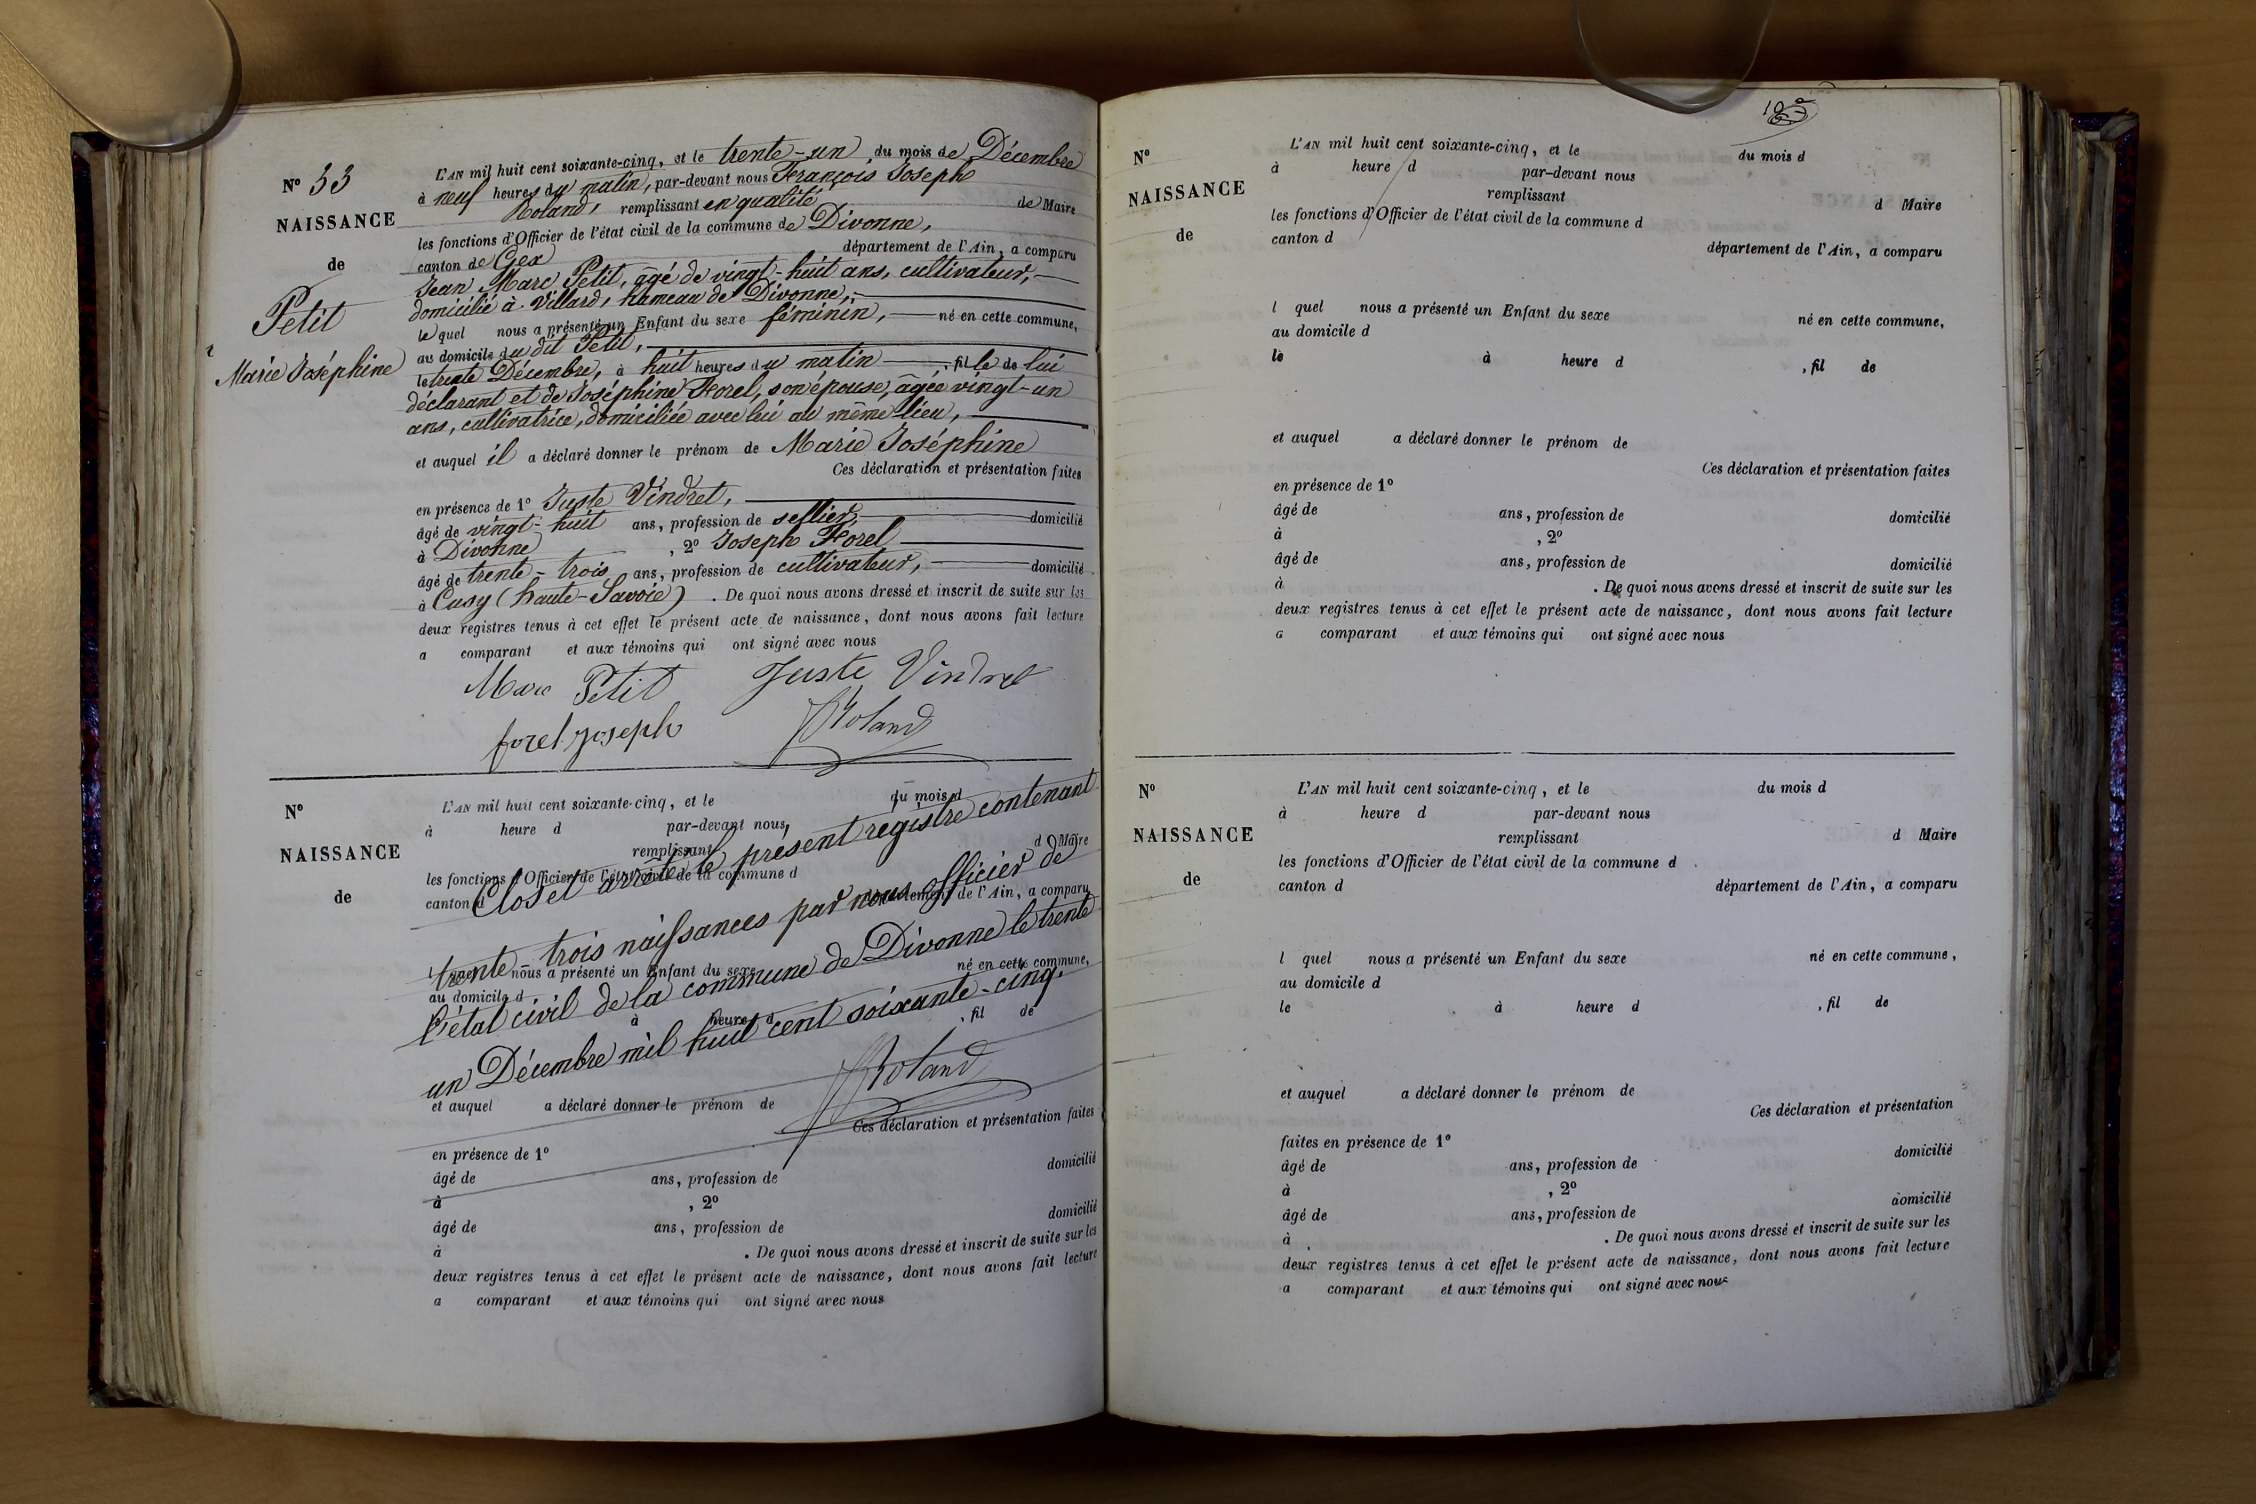 Nº 33
NAISSANCE
de
Petit
Marie Joséphine
L'AN mil huit cent soixante-cinq, et le trente-un du mois de Décembre
à neuf heures du matin, par-devant nous François Joseph
Roland, remplissant en qualité de Maire
les fonctions d'Officier de l'état civil de la commune de Divonne,
canton de Gex département de l'Ain, a comparu
Jean Marc Petit, âgé de vingt-huit ans, cultivateur,
domicilié à Villard, hameau de Divonne,
lequel nous a présenté un Enfant du sexe féminin, né en cette commune,
au domicile du dit Petit,
le trente Décembre, à huit heures du matin, fille de lui
déclarant et de Joséphine Forel, son épouse, âgée vingt-un
ans, cultivatrice, domiciliée avec lui au même lieu,
et auquel il a déclaré donner le prénom de Marie Joséphine
Ces déclaration et présentation faites
en présence de 1º Juste Vindret,
âgé de vingt-huit ans, profession de sellier, domicilié
à Divonne, 2º Joseph Forel
âgé de trente-trois ans, profession de cultivateur, domicilié
à Cusy (haute-Savoie). De quoi nous avons dressé et inscrit de suite sur les
deux registres tenus à cet effet le présent acte de naissance, dont nous avons fait lecture
a comparant et aux témoins qui ont signé avec nous
Marc Petit Juste Vindret
forel joseph Roland
Nº
NAISSANCE
de
L'AN mil huit cent soixante-cinq, et le du mois d
à heure d par-devant nous,
remplissant d Maire
les fonctions d'Officier de l'état civil de la commune d
canton d département de l'Ain, a comparu
Clos et arrêté le présent registre contenant
trente-trois naissances par nous officier de
l'état civil de la commune de Divonne le trente
un Décembre mil huit cent soixante-cinq.
Roland
l quel nous a présenté un Enfant du sexe né en cette commune,
au domicile d
à heure d , fil de
et auquel a déclaré donner le prénom de
Ces déclaration et présentation faites
en présence de 1º
âgé de ans, profession de domicilié
à , 2º
âgé de ans, profession de domicilié
à . De quoi nous avons dressé et inscrit de suite sur les
deux registres tenus à cet effet le présent acte de naissance, dont nous avons fait lecture
a comparant et aux témoins qui ont signé avec nous
Nº
NAISSANCE
de
L'AN mil huit cent soixante-cinq, et le du mois d
à heure d par-devant nous
remplissant d Maire
les fonctions d'Officier de l'état civil de la commune d
canton d département de l'Ain, a comparu
l quel nous a présenté un Enfant du sexe né en cette commune,
au domicile d
le à heure d , fil de
et auquel a déclaré donner le prénom de
Ces déclaration et présentation faites
en présence de 1º
âgé de ans, profession de domicilié
à , 2º
âgé de ans, profession de domicilié
à . De quoi nous avons dressé et inscrit de suite sur les
deux registres tenus à cet effet le présent acte de naissance, dont nous avons fait lecture
a comparant et aux témoins qui ont signé avec nous
Nº
NAISSANCE
de
L'AN mil huit cent soixante-cinq, et le du mois d
à heure d par-devant nous
remplissant d Maire
les fonctions d'Officier de l'état civil de la commune d
canton d département de l'Ain, a comparu
l quel nous a présenté un Enfant du sexe né en cette commune,
au domicile d
le à heure d , fil de
et auquel a déclaré donner le prénom de
Ces déclaration et présentation
faites en présence de 1º
âgé de ans, profession de domicilié
à , 2º
âgé de ans, profession de domicilié
à . De quoi nous avons dressé et inscrit de suite sur les
deux registres tenus à cet effet le présent acte de naissance, dont nous avons fait lecture
a comparant et aux témoins qui ont signé avec nous